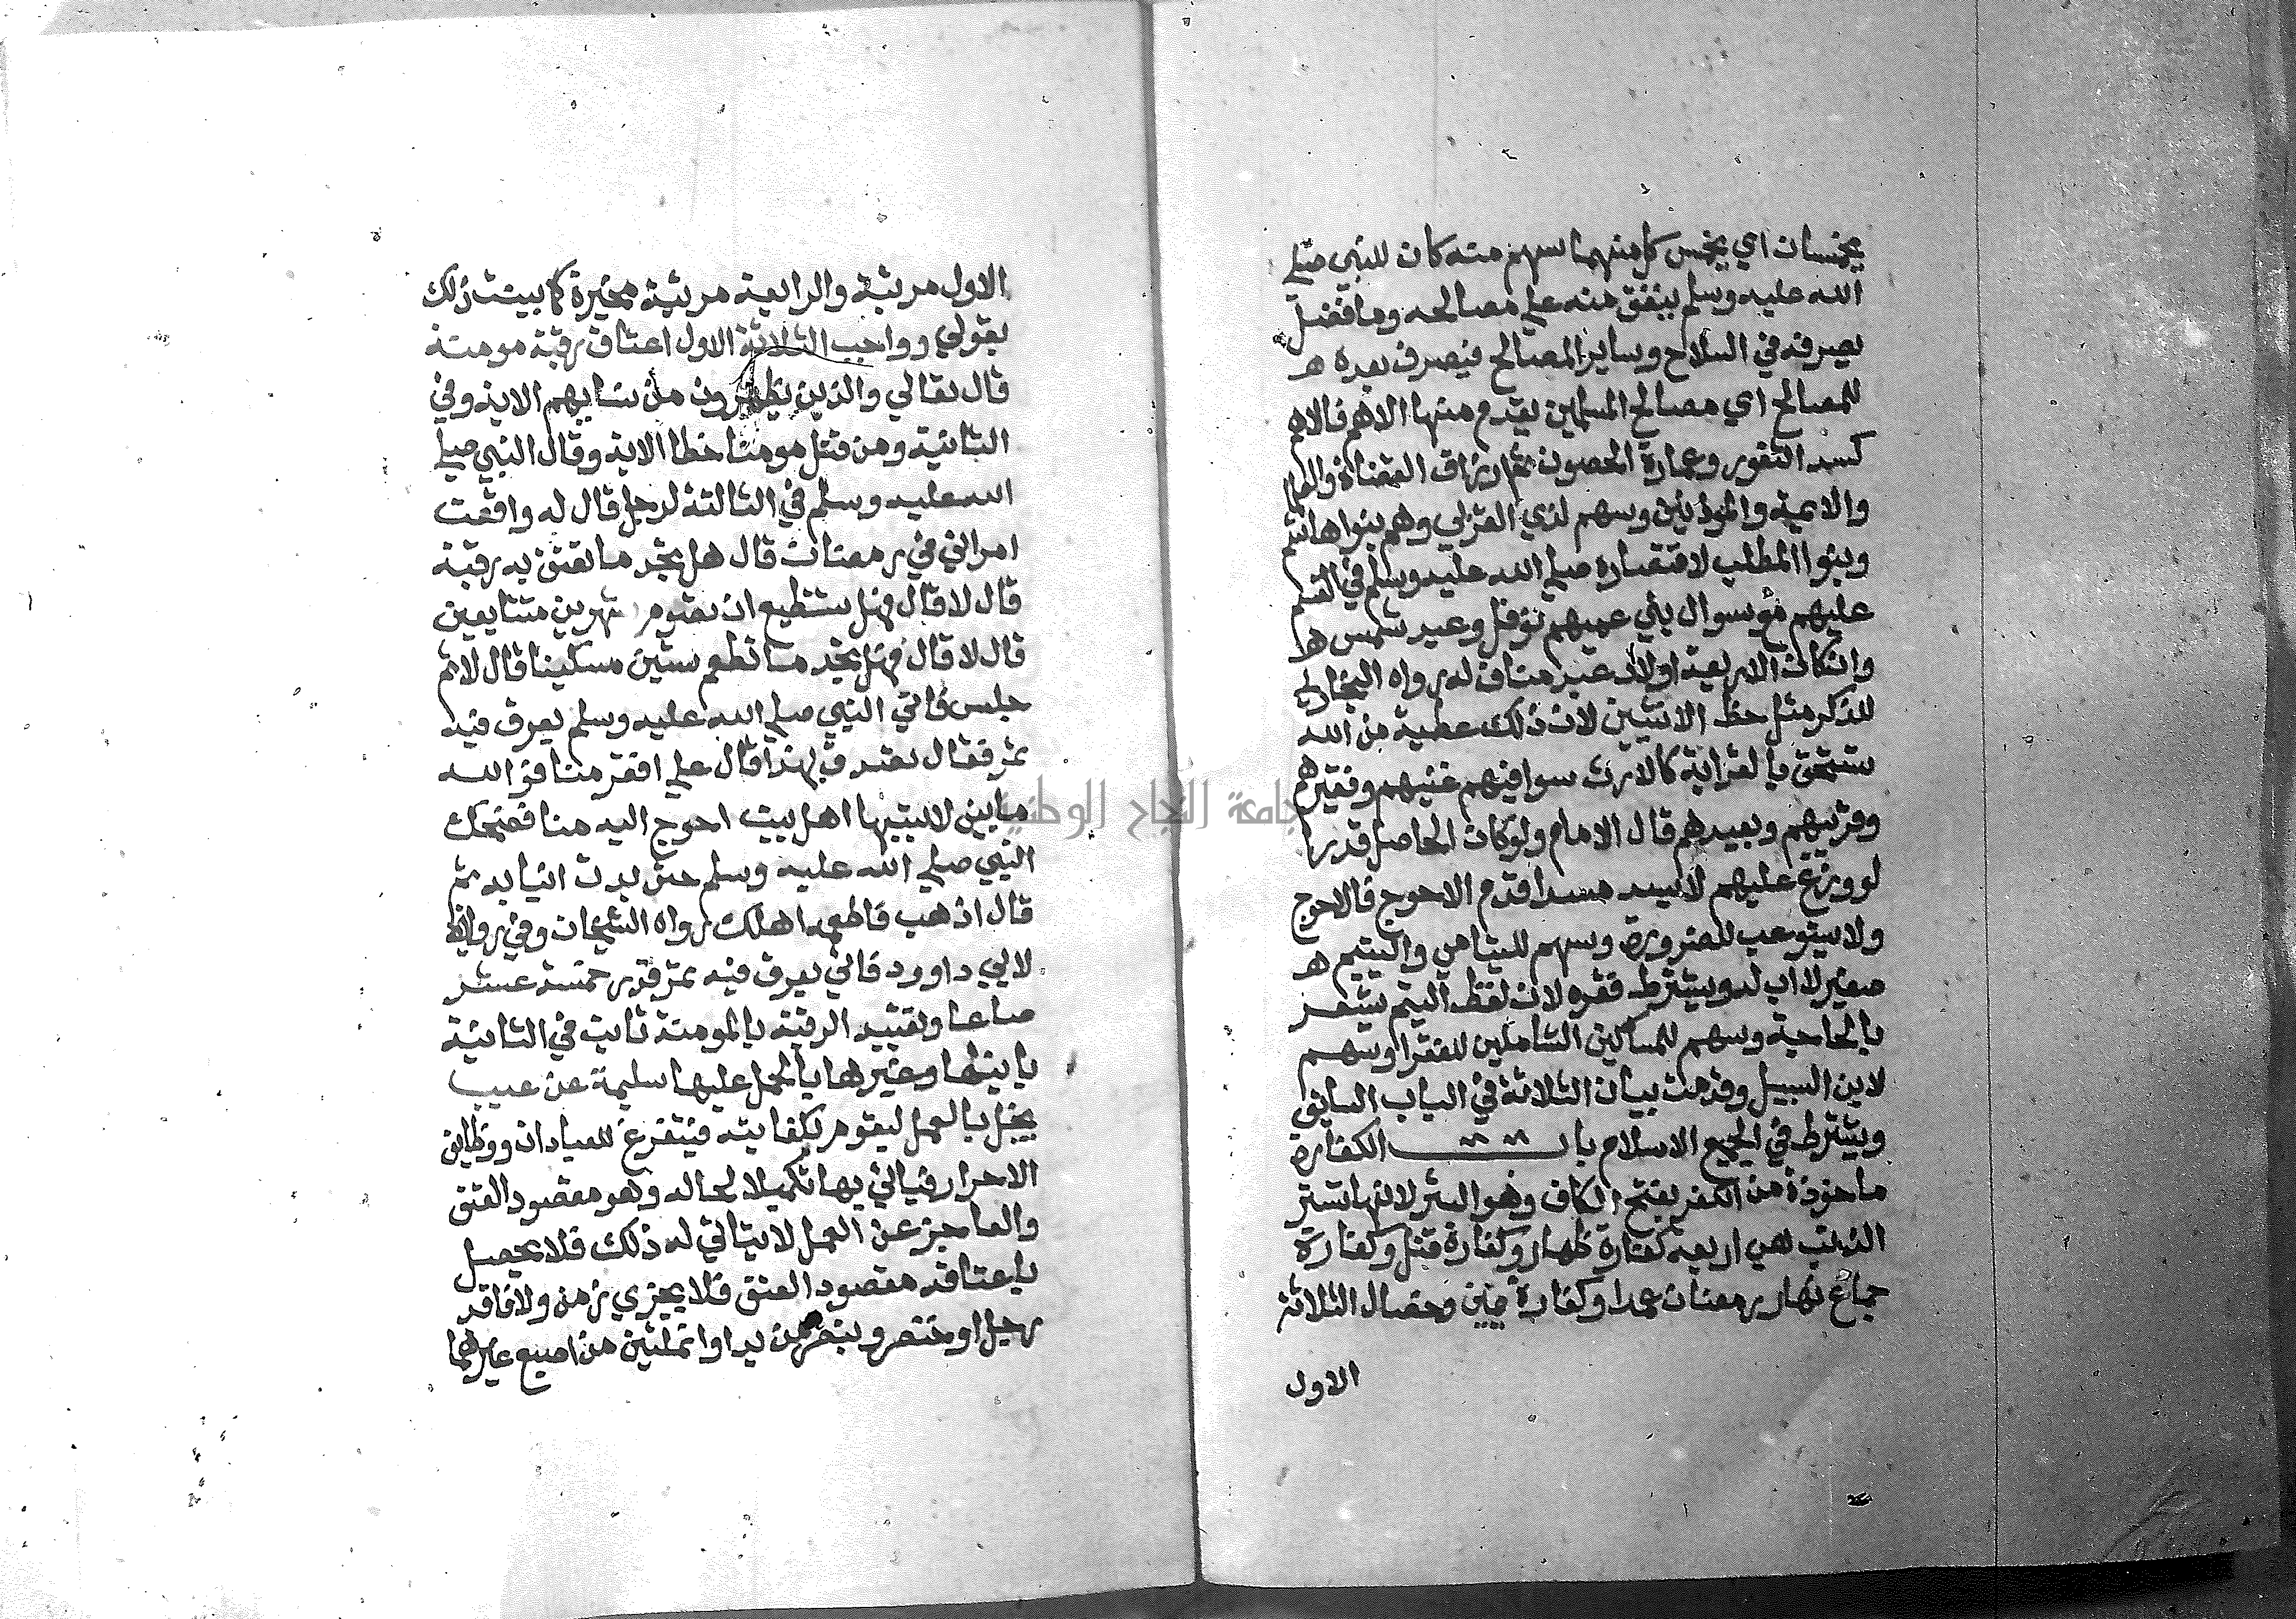 يخمسان اي يخمس كل منهما سهم منه كان للنبي صلي
الله عليه وسلم ينفق منه علي مصالحه وما فضل
يصرفه في السلاح وساير المصالح فيصرف بعده ه
للمصالح اي مصالح المسلمين يقدم منها الاهم فالاهم
كسد الثغور وعمارة الحصون ثم ارزاق القضاة والعلما
والايمة والموذنين وسهم لذي القربي وهم بنوا هاشم
وبنوا المطلب لاقتصاره صلي الله عليه وسلم في القسم
عليهم مع سوال بني عميهم نوفل وعبد شمس ها
وان كان الاربعة اولاد عبد مناف له رواه البخاري
للذكر مثل حظ الانثيين لان ذلك عطية من الله
تستحق بالقرابة كالارث سوا فيهم غنيهم وفقيرهم
وقريبهم وبعيدهم قال الامام ولو كان الحاصل قدرا
لو وزع عليهم لا يسد مسدا قدم الاحوج فالاحوج
ولا يستوعب للضرورة وسهم لليتامي واليتيم ه
صغير لا اب له ويشترط فقره لان لفظ اليتم يشعر
بالحاجة وسهم للمساكين الشاملين للفقرا وسهم
لابن السبيل وقدمت بيان الثلاثة في الباب السابق
ويشترط في الجميع الاسلام باب الكفارة
ماخوذة من الكفر بفتح الكاف وهو الستر لانها تستر
الذنب هي اربعة كفارة ظهار وكفارة قتل وكفارة
جماع نهار رمضان عمدا وكفارة يمين وخصال الثلاثة
الاول
الاول مرتبة والرابعة مرتبة مخيرة كما بينت ذلك
بقولي وواجب الثلاثة الاول اعتاق رقبة مومنة
قال تعالي والذين يظهرون من نسايهم الاية وفي
الثانية ومن قتل مومنا خطا الاية وقال النبي صلي
الله عليه وسلم في الثالثة لرجل قال له واقعت
امراتي في رمضان قال هل تجد ما تعتق به رقبة
قال لا قال فهل تستطيع ان تصوم شهرين متتابعين
قال لا قال فهل تجد ما تطعم ستين مسكينا قال لا ثم
جلس فاتي النبي صلي الله عليه وسلم بعرق فيه
تمر فقال تصدق بهذا قال علي افقر منا فوالله
ما بين لابتيها اهل بيت احوج اليه منا فضحك
النبي صلي الله عليه وسلم حتي بدت انيابه ثم
قال اذهب فاطعمه اهلك رواه الشيخان وفي رواية
لابي داوود فاتي بعرق فيه تمر قدر خمسة عشر
صاعا وتقييد الرقبة بالمومنة ثابت في الثانية
بايتها وغيرها بالحمل عليها سليمة عن عيب
يخل بالعمل ليقوم بكفايته فيتفرغ للعبادات ووظايف
الاحرار فياتي بها تكميلا لحاله وهو مقصود العتق
والعاجز عن العمل لا يتاتي له ذلك فلا يحصل
باعتاقه مقصود العتق فلا يجزي زمن ولا فاقد
رجل او خنصر وبنصر من يد او انملتين من اصبع غيرهما
جامعة النجاح الوطنية